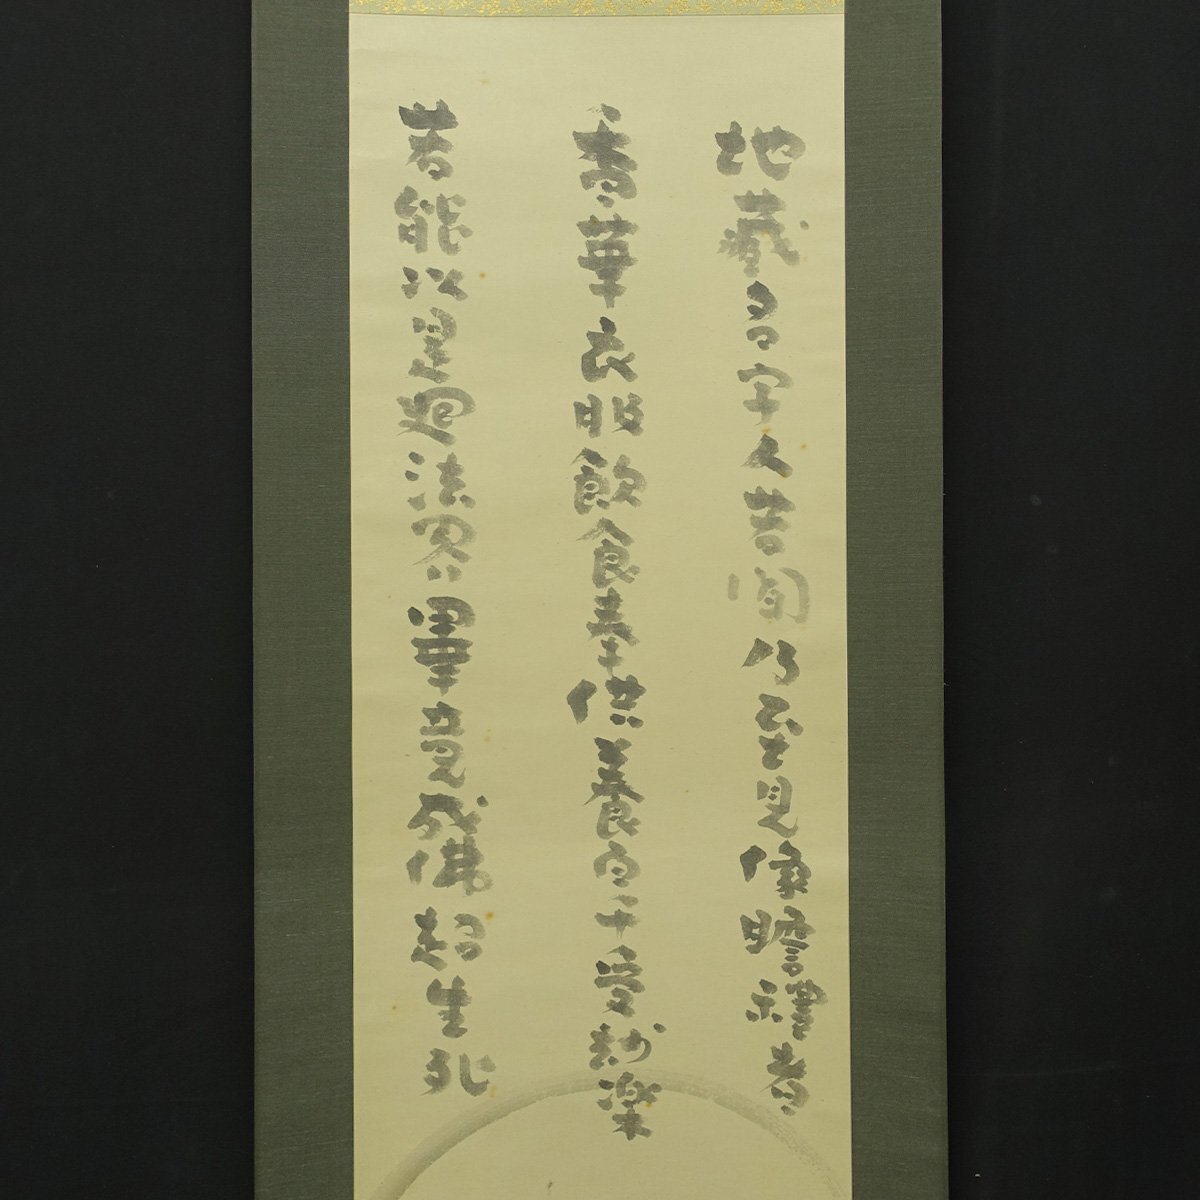 地藏名字人若聞乃至見像瞻禮者
香華衣服飲食奉供養百千受妙樂
若能以是廻法界畢竟成佛超生死